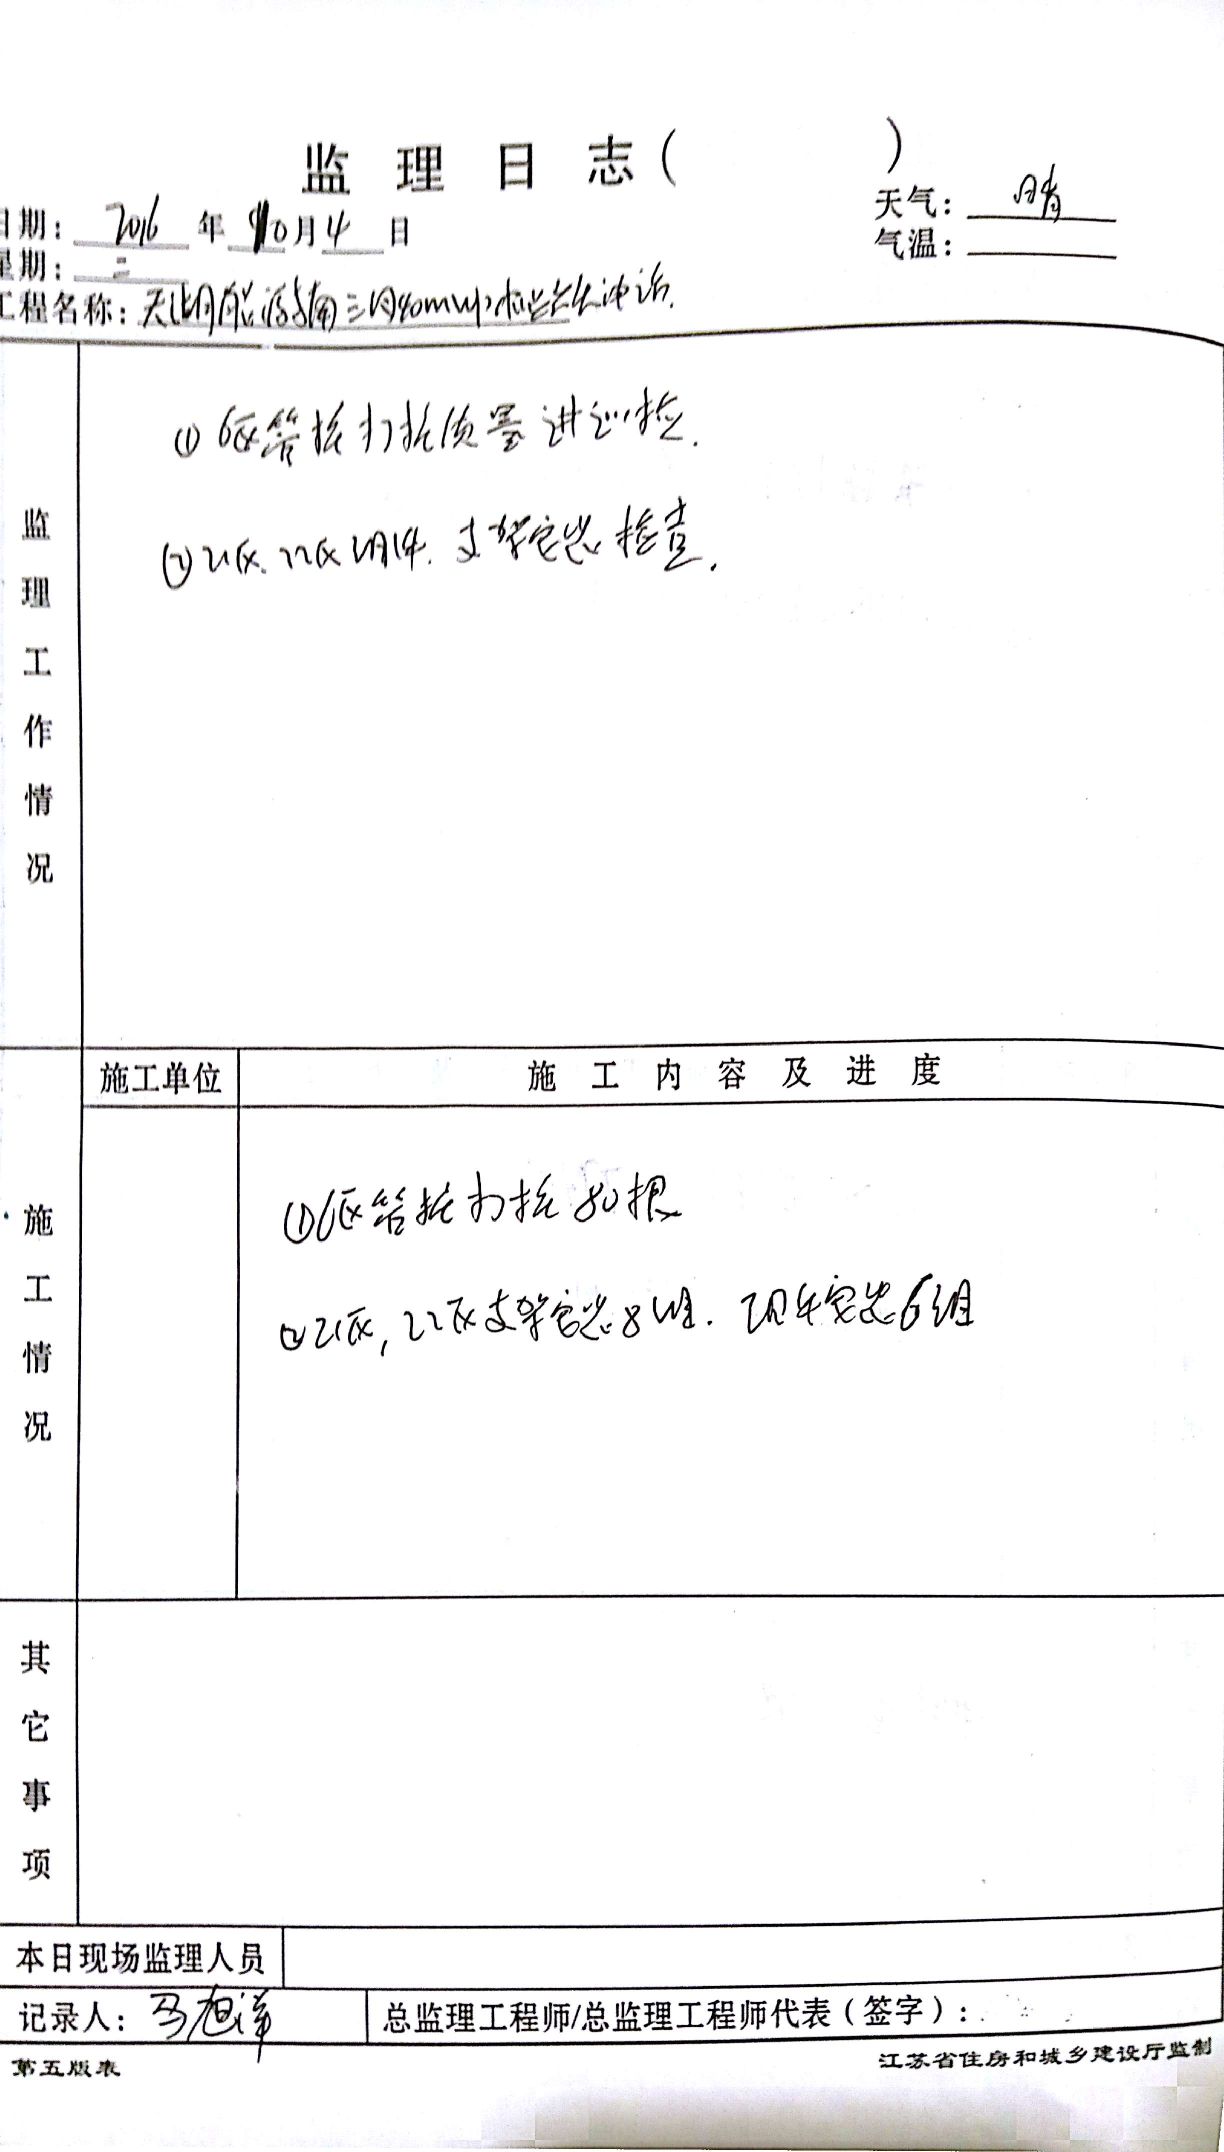 监理日志( )
日期: 2016 年 10月 4 日
天气: 晴
星期: 二
气温:
工程名称: 天湖 40MWp
监理工作情况
① 6区管桩打桩质量进巡检.
② 21区. 22区组件. 支架安装检查.
施工单位
施工内容及进度
施工情况
①6区管桩打桩80根
②21区, 22区支架安装8组. 安装6组
其它事项
本日现场监理人员
记录人: 马旭洋
总监理工程师/总监理工程师代表(签字):
第五版表
江苏省住房和城乡建设厅监制